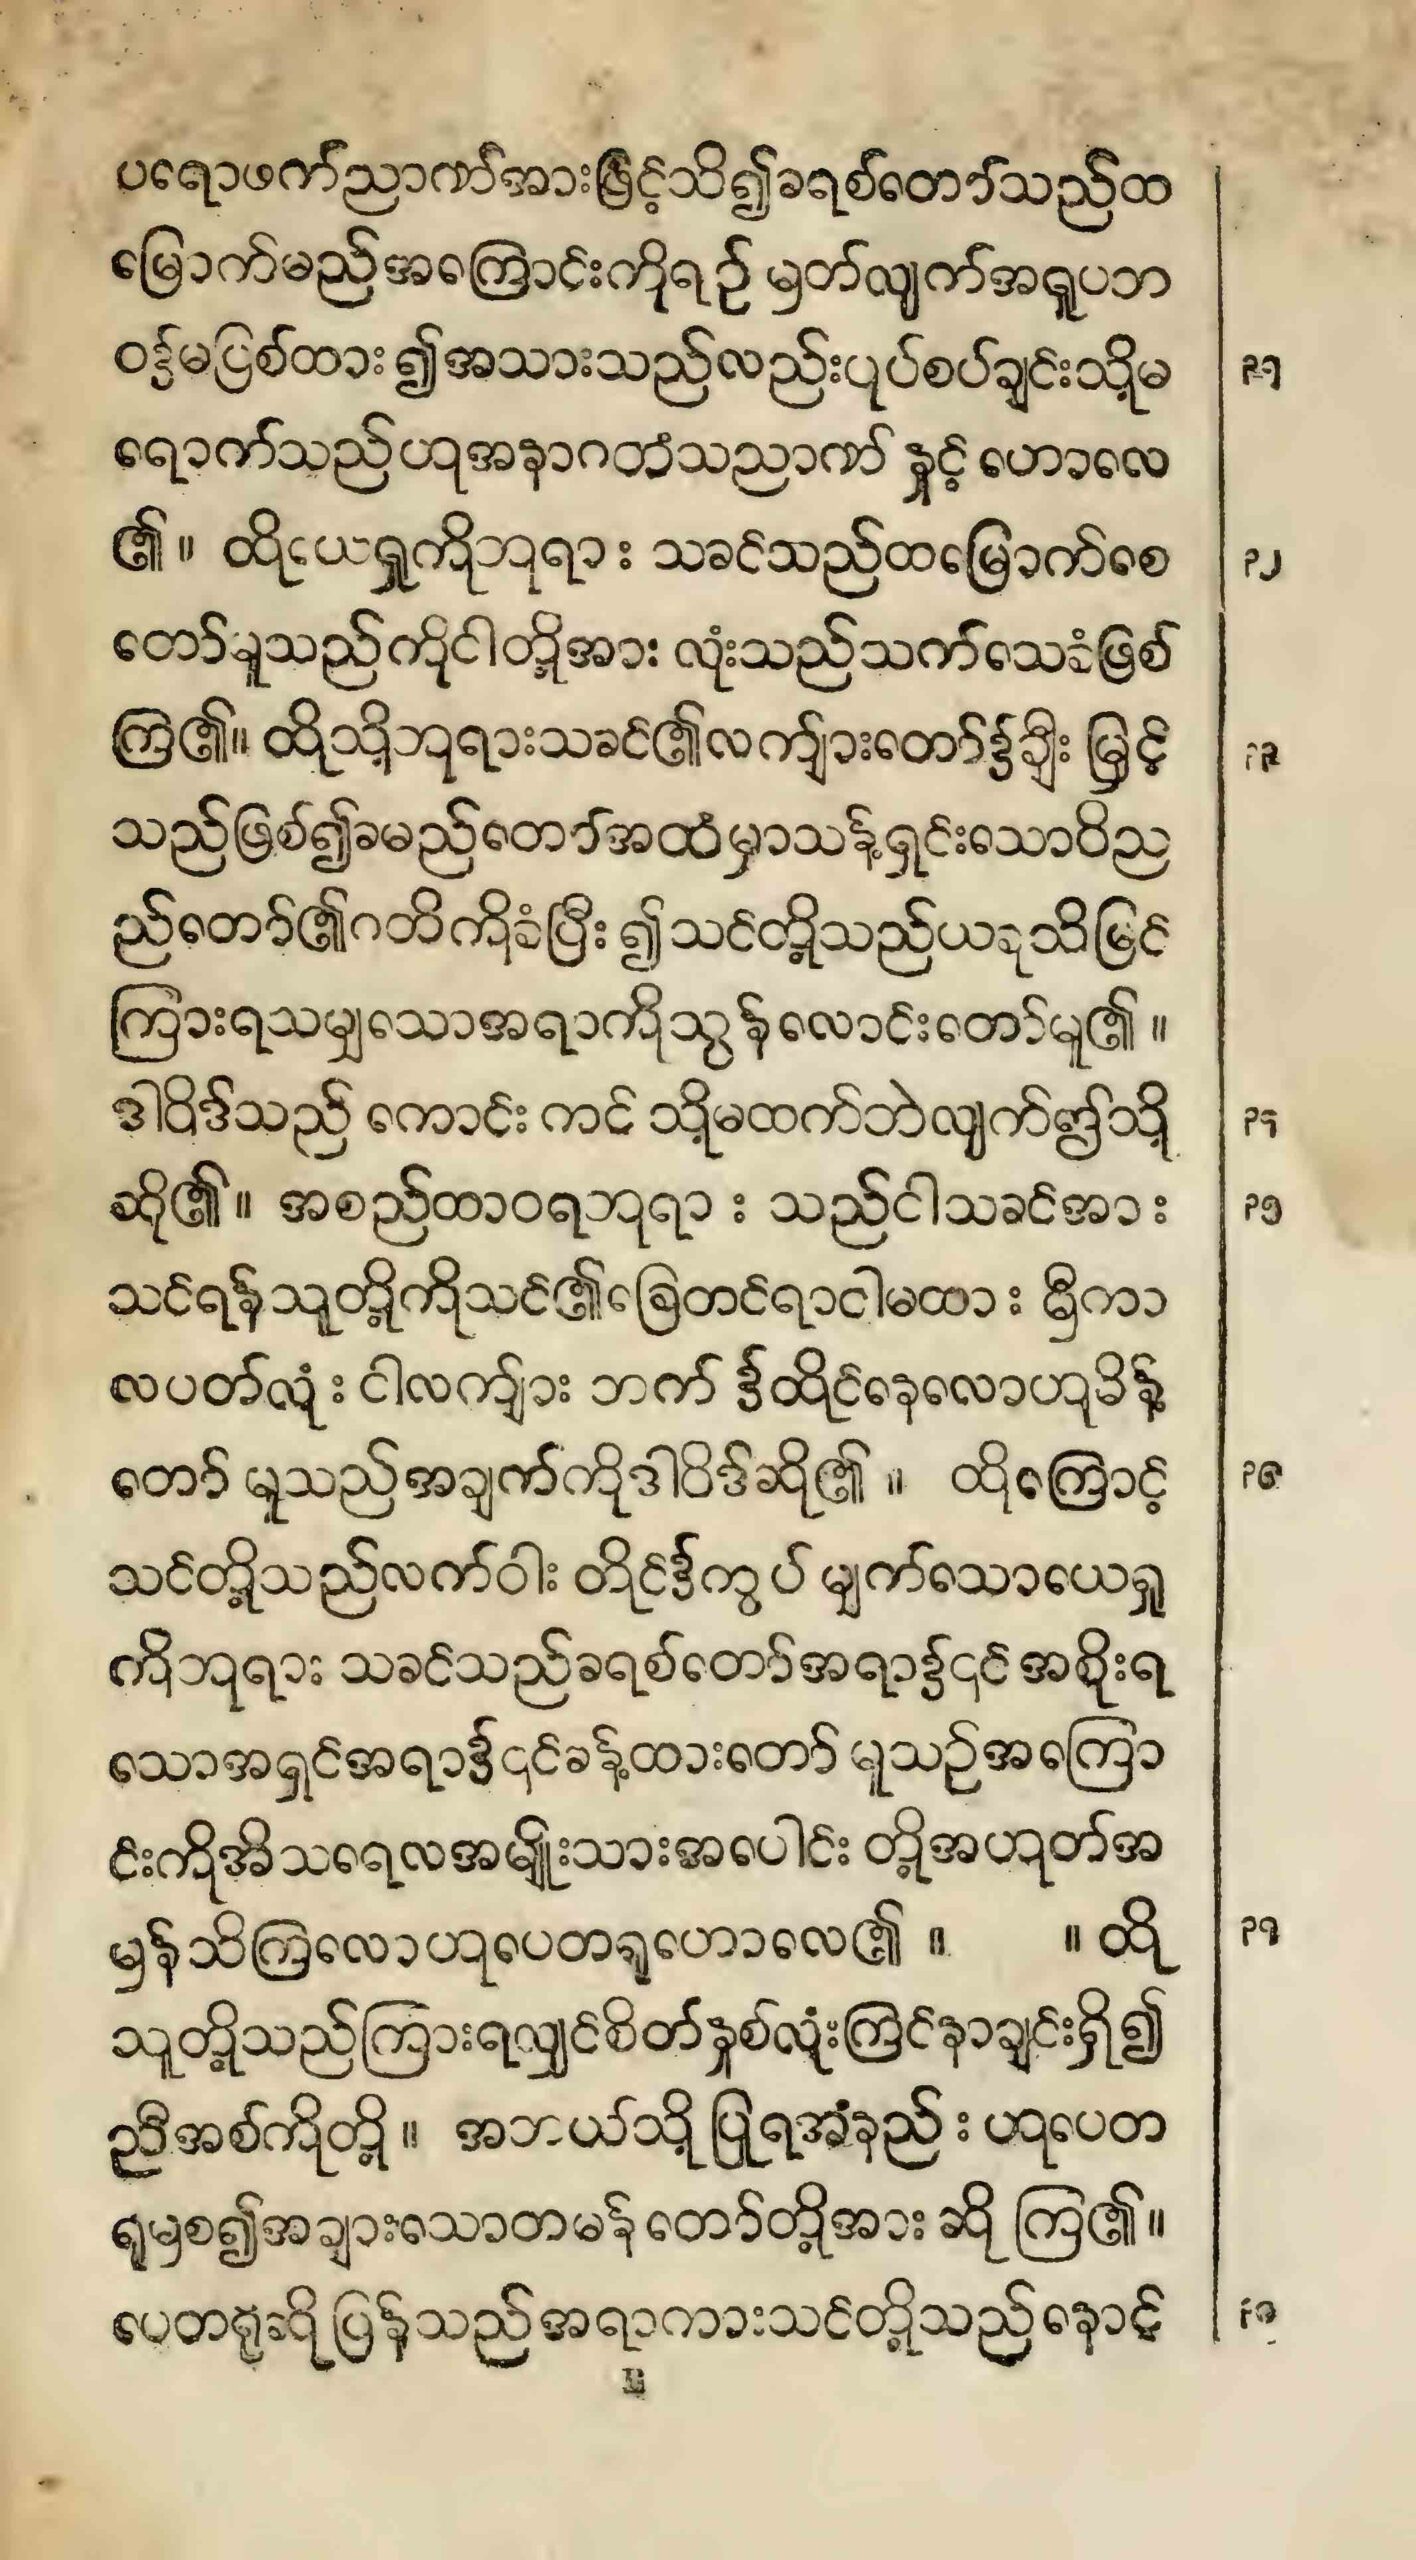 ပရောဖက်ညာဏ်အားဖြင့်သိ၍ခရစ်တော်သည်ထ
မြောက်မည်အကြောင်းကိုရဉ် မှတ်လျက်အရူပဘ
ဝ၌မဖြစ်ထား၍အသားသည်လည်းပုပ်စပ်ချင်းသို့မ ၃၁
ရောက်သည်ဟုအနာဂတံသညာဏ် နှင့် ဟောလေ
၏။ ထိုယေရှုကိုဘုရား သခင်သည်ထမြောက်စေ ၃၂
တော်မူသည်ကိုငါတို့အား လုံးသည်သက်သေခံဖြစ်
ကြ၏။ ထိုသို့ဘုရားသခင်၏လက်ျားတော်၌ချီး မြှင့် ၃၃
သည်ဖြစ်၍ခမည်တော်အထံမှာသန့်ရှင်းသောဝိည
ည်တော်၏ဂတိကိုခံပြီး ၍သင်တို့သည်ယခုသိမြင်
ကြားရသမျှသောအရာကိုသွန်လောင်းတော်မူ၏။
ဒါဝိဒ်သည် ကောင်း ကင် သို့မထက်ဘဲလျက်ဤသို့ ၃၄
ဆို၏။ အစည်ထာဝရဘုရား သည်ငါသခင်အား ၃၅
သင်ရန်သူတို့ကိုသင်၏ခြေတင်ရာငါမထား မှီကာ
လပတ်လုံး ငါလက်ျား ဘက် ၌ထိုင်နေလောဟုမိန့်
တော် မူသည်အချက်ကိုဒါဝိဒ်ဆို၏။ ထိုကြောင့် ၃၆
သင်တို့သည်လက်ဝါး တိုင်၌ကွပ် မျှက်သောယေရှု
ကိုဘုရား သခင်သည်ခရစ်တော်အရာ၌၎င်အစိုးရ
သောအရှင်အရာ၌၎င်ခန့်ထားတော် မူသဉ်အကြော
င်းကိုအိသရေလအမျိုးသားအပေါင်း တို့အဟုတ်အ
မှန်သိကြလောဟုပေတရုဟောလေ၏။ ။ထို ၃၇
သူတို့သည်ကြားရလျှင်စိတ်နှစ်လုံးကြင်နာချင်းရှိ၍
ညီအစ်ကိုတို့။ အဘယ်သို့ ပြုရအံ့နည်း ဟုပေတ
ရုမှစ၍အချားသောတမန်တော်တို့အား ဆို ကြ၏။
ပေတရုဆို ပြန်သည်အရာကားသင်တို့သည်နောင် ၃၈